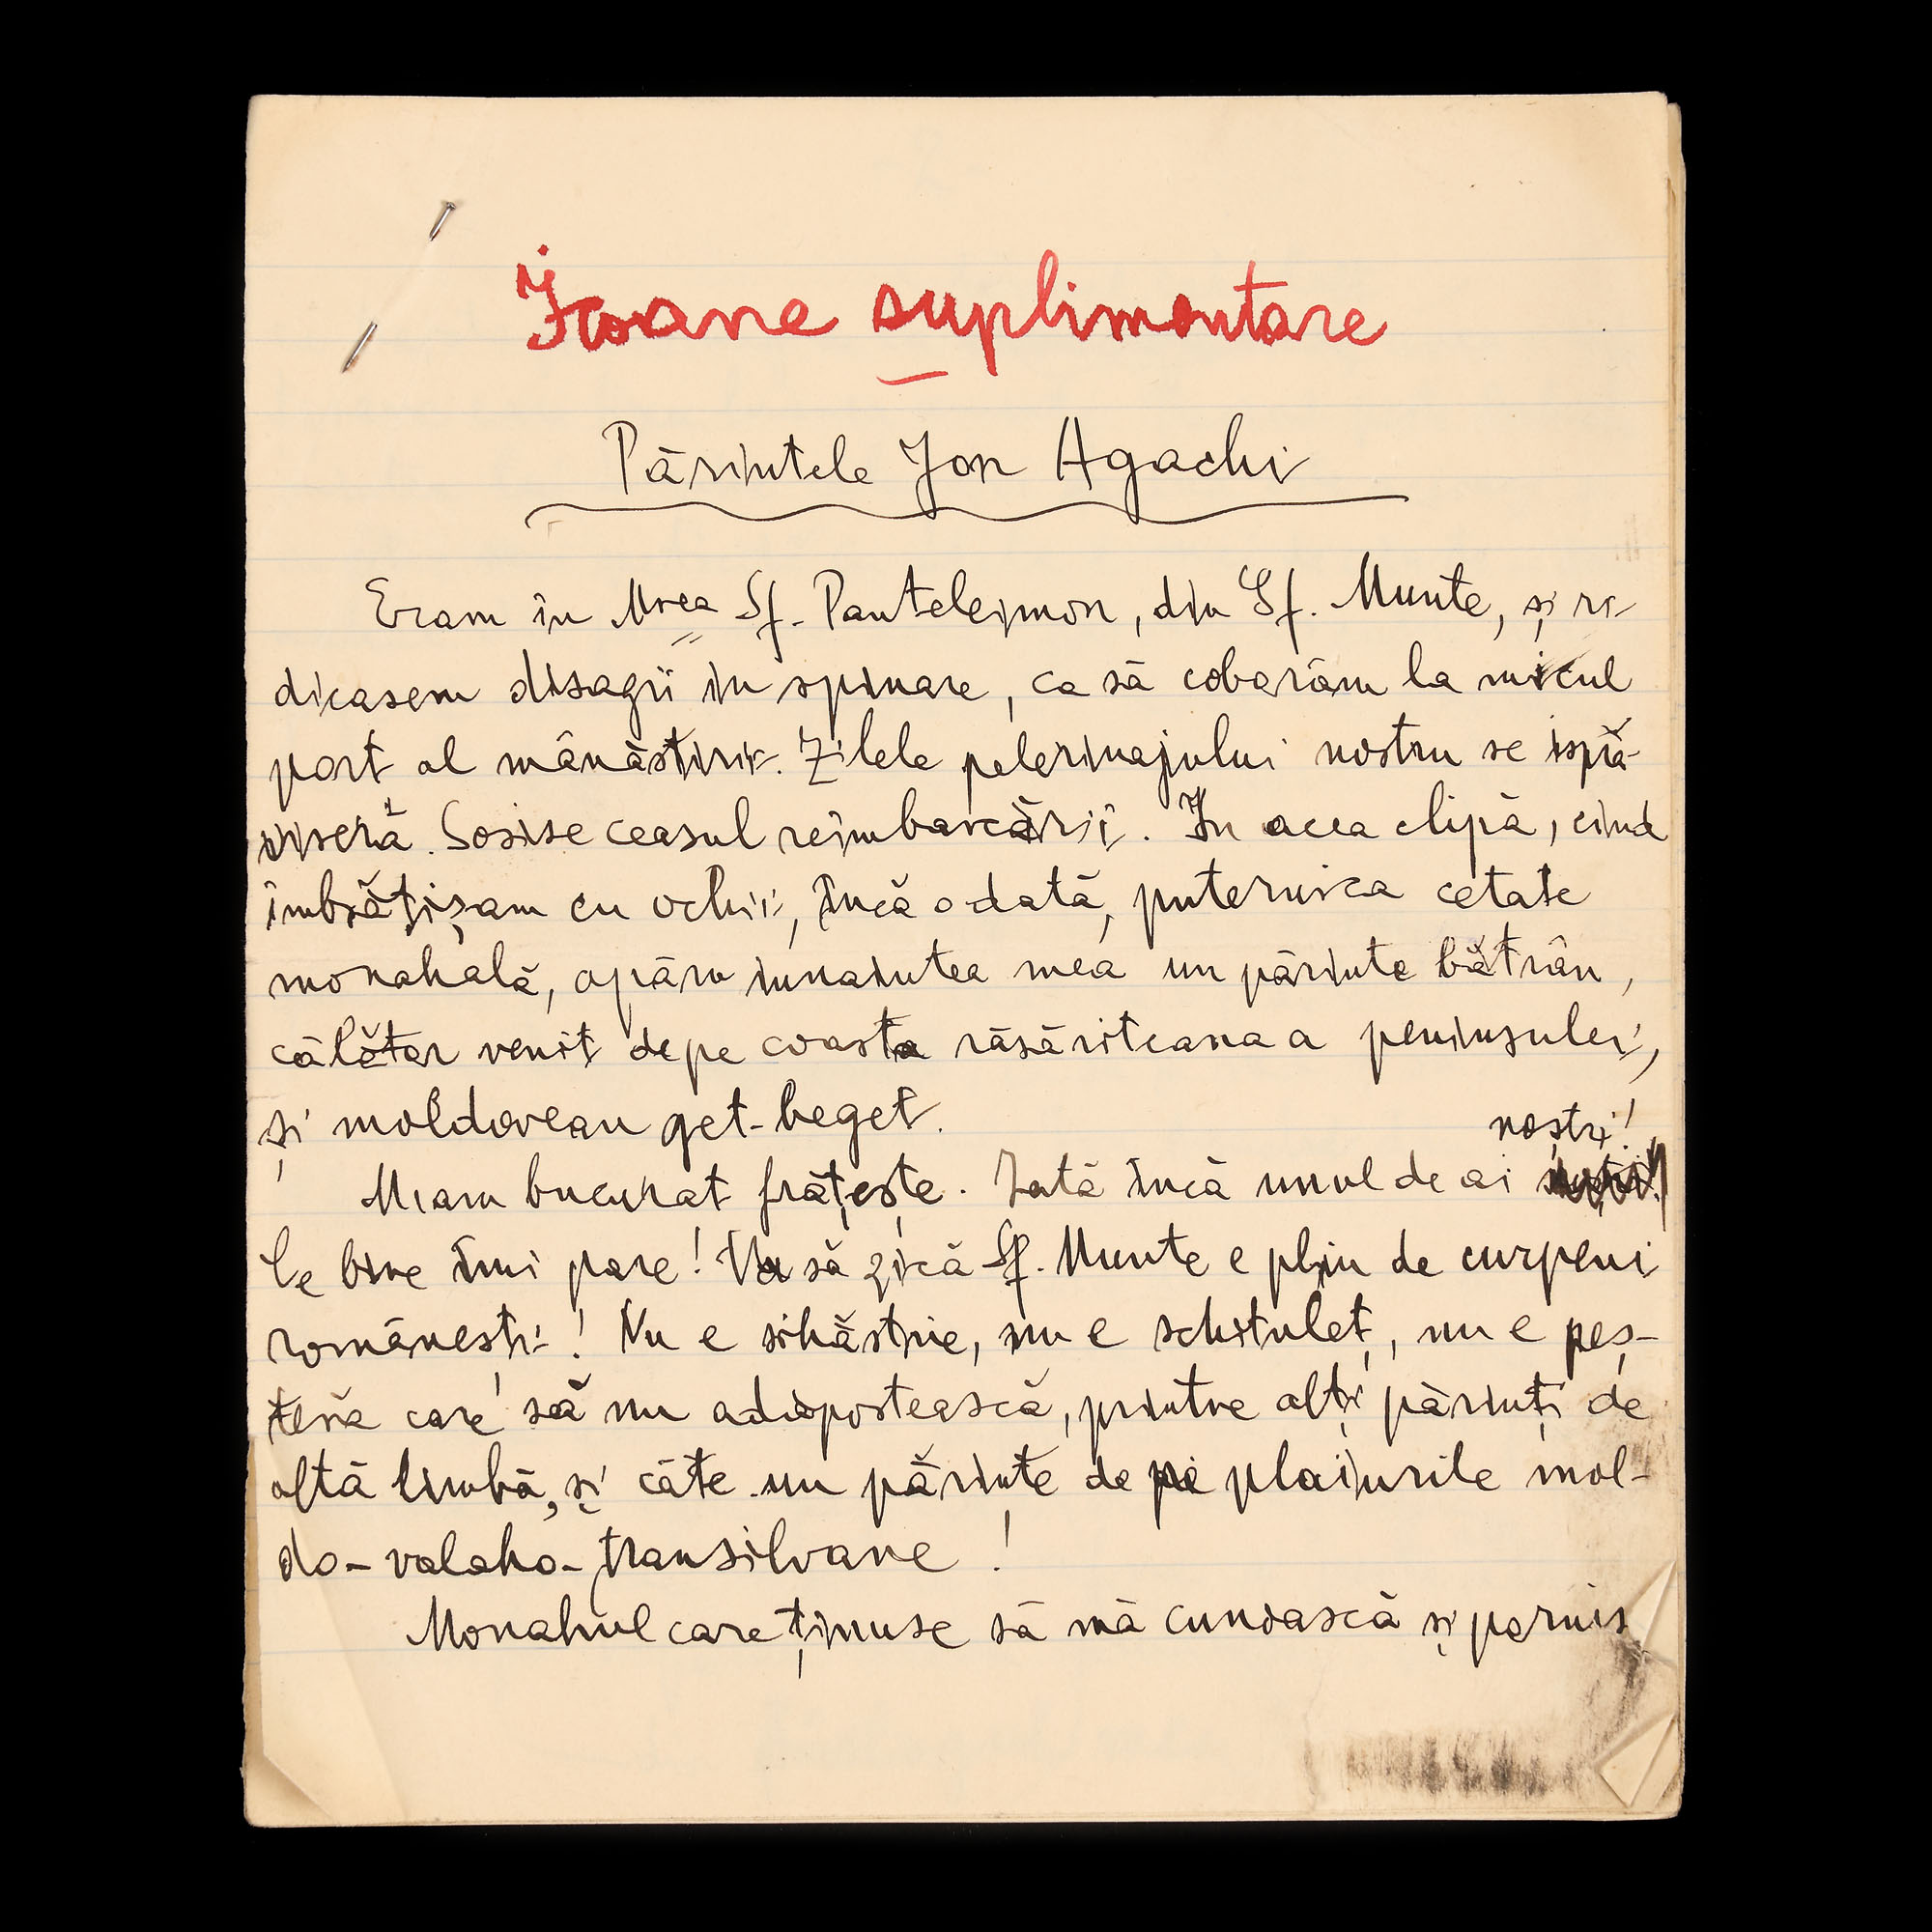 Icoane suplimentare
Părintele Ion Agachi
Eram în Mrea Sf. Pantelejmon, din Sf. Munte, și ri-
dicasem disagii în spinare, ca să coborâm la micul
port al mănăstirii. Zilele pelerinajului nostru se ispră-
viseră. Sosise ceasul reîmbarcării. In acea clipă, cînd
îmbrățișam cu ochii, încă odată, puternica cetate
monahală, apăru înnaintea mea un părinte bătrân,
călător venit depe coasta răsăriteana a peninsulei,
și moldovean get-beget.
Miam bucurat frățește. Iată încă unul de ai nostri!
Ce bine îmi pare! Va să zică Sf. Munte e plin de curpeni
românești! Nu e sihăstrie, nu e schituleț, nu e peș-
teră care să nu adăpostească, printre alți părinți de
altă limbă, și câte un părinte de pe plaiurile mol-
do-valaho-transilvane!
Monahul care ținuse să mă cunoască și pornis